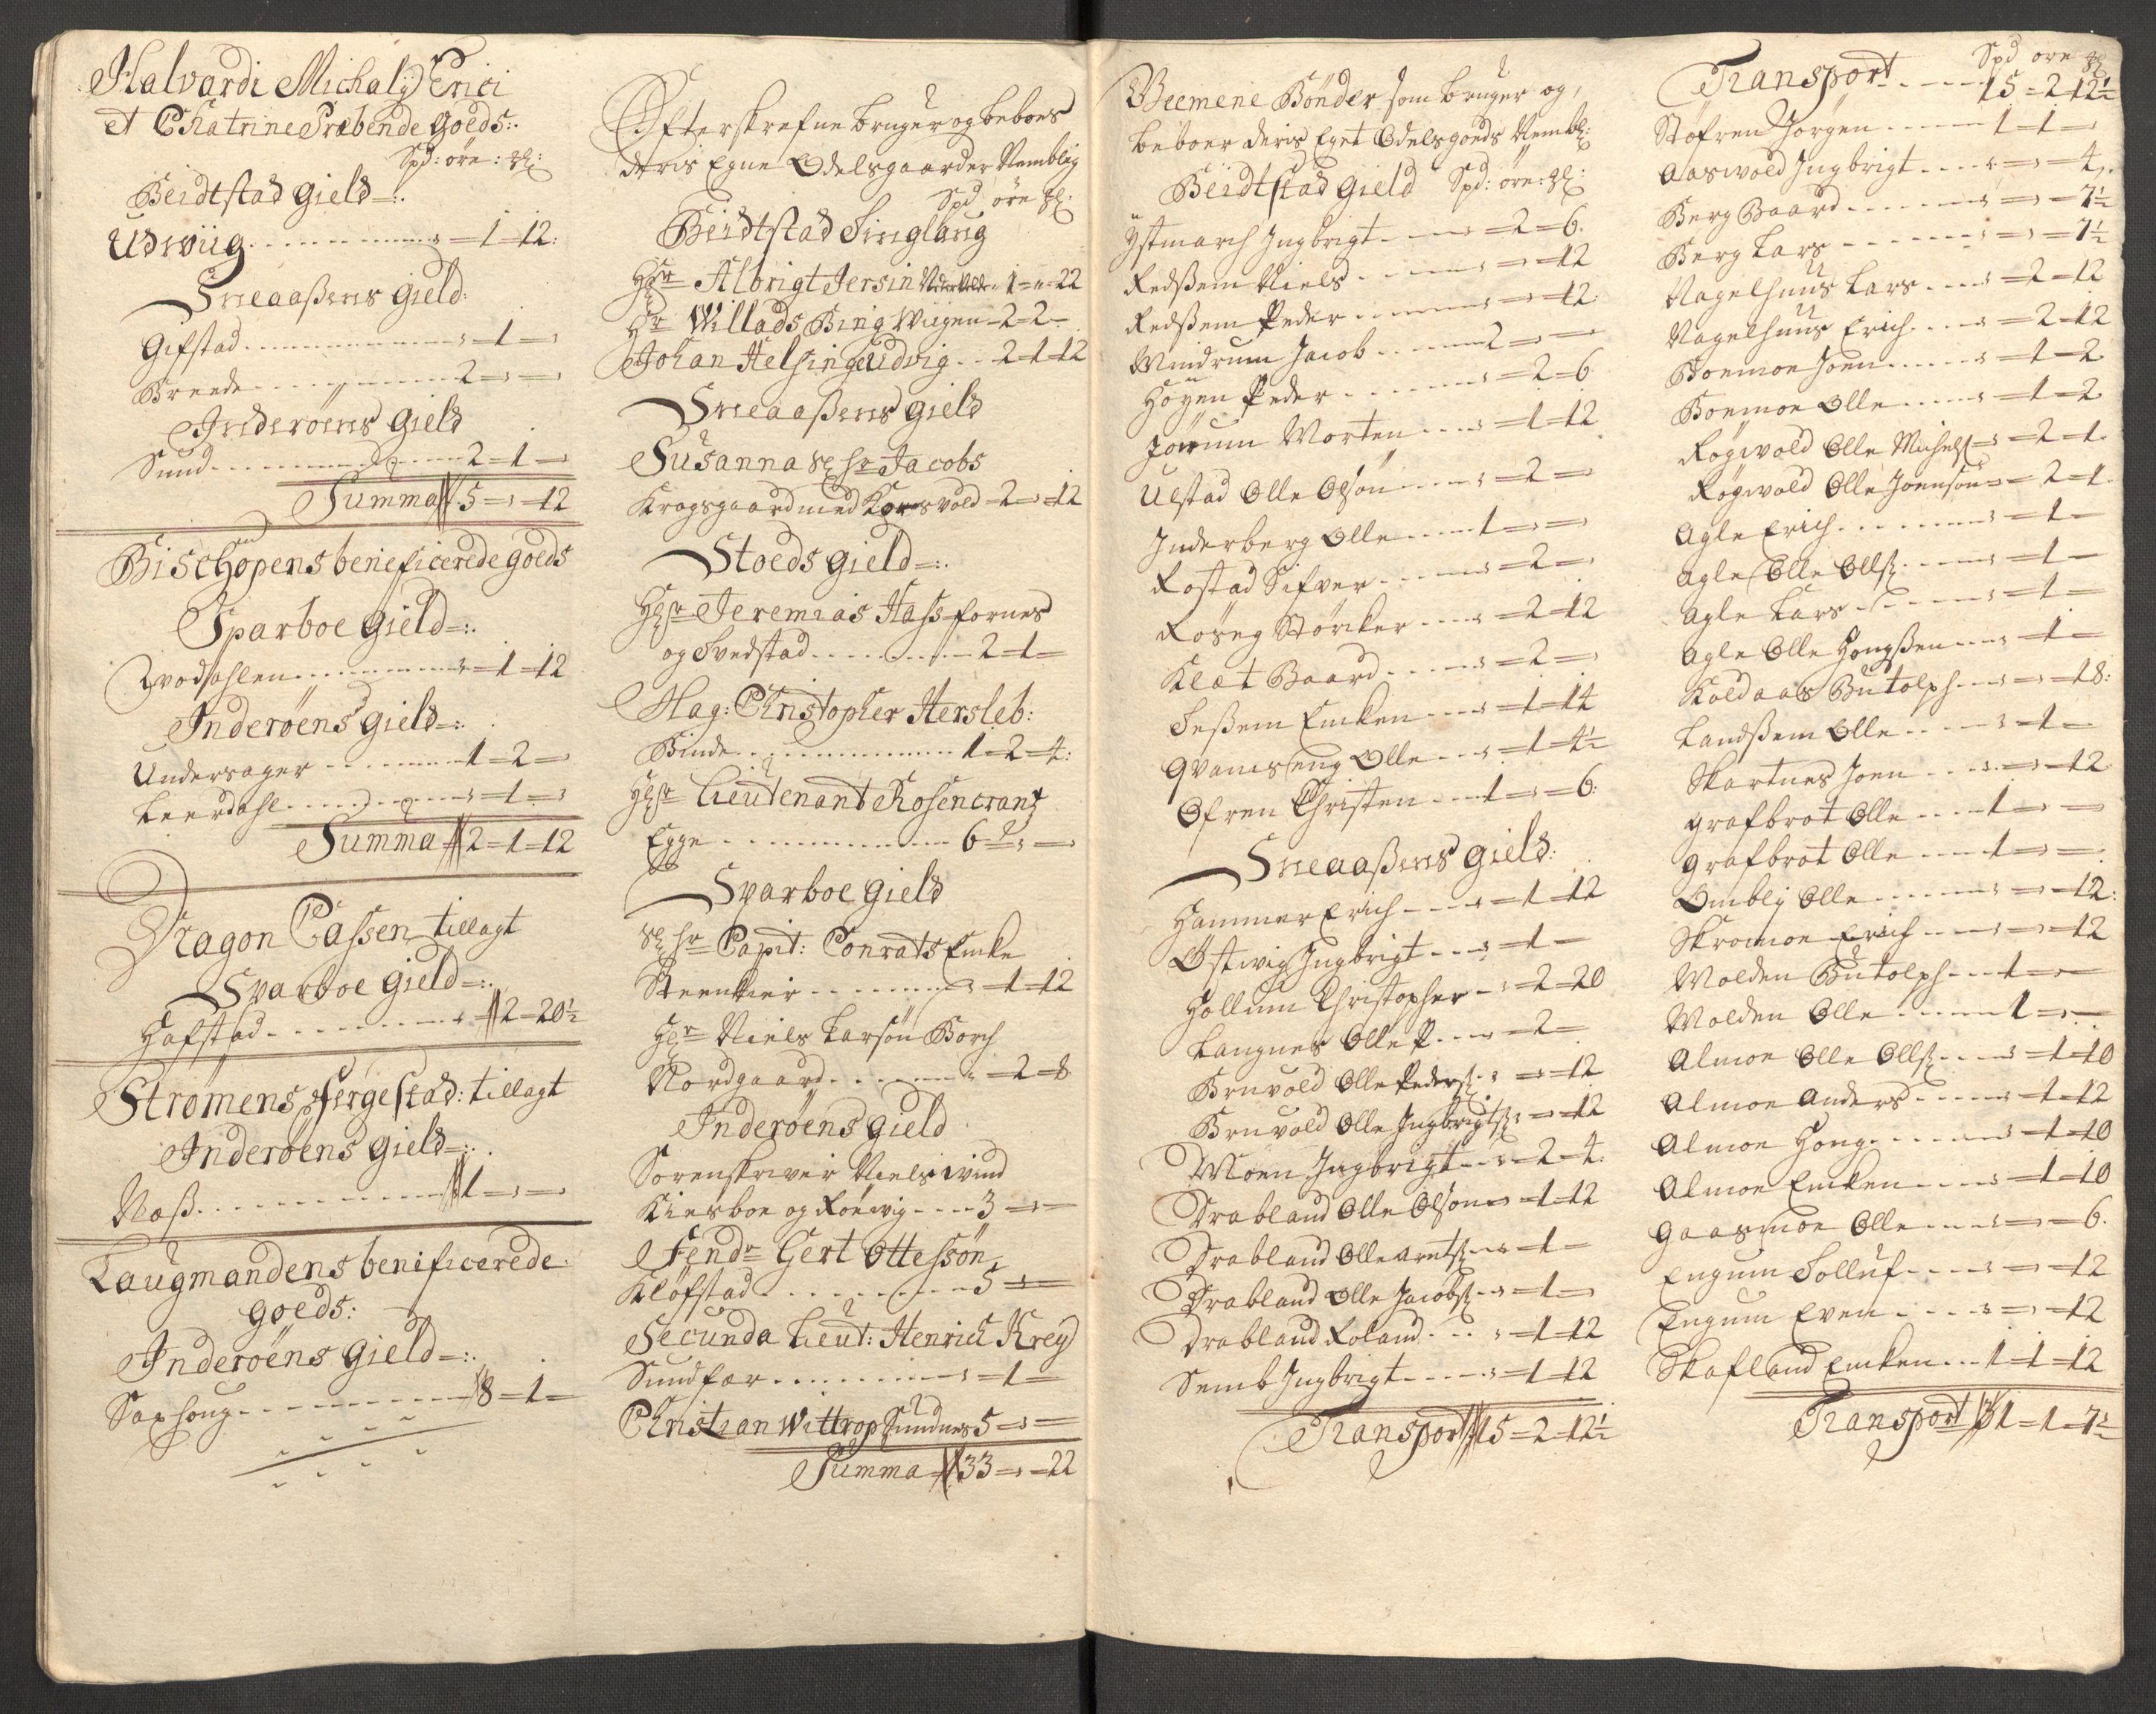 Halvardi Michaly Erici
et Chatrine Præbende goeds:
Spd: öre: :
Beidtstad gield
Udwiig - 1 - 12:
Sneaaßens gield:
Gifstad - 1 -
Breede 2 - -
Inderöens gield
Sund 2 - 1 -
Summa 5 - - 12
Bischopens beneficerede goeds
Sparboe gield
Qvodahlen - 1 - 12
Inderöens gield
Undersager 1 - 2 -
Leerdahl - 1 -
Summa 2 - 1 - 12
Dragon Cassen tillagt
Sparboe gield
Hafstad 2 - 20½
Strömens Fergestad: tillagt
Inderöens gield
Næß 1 - -
Laugmandens benificerede
goeds:
Inderöens gield
Saxhoug 8 - 1 -
Efterskrefne bruger og beboes
deris Egne Odelsgaarder Nemblig
Spd öre
Beidtstad Tinglaug
Hr Albrigt Jersin 1 - - 22
Hr Willads Bing Wiigen - 2 - 2 -
Johan Helsing Udvig 2 - 1 - 12
Sneaaßens gield
Susanna Sl hr Jacobs
Krogsgaard med Korsvold - 2 - - 12
Stoeds gield
Hr Jeremias Hass fornes
og Tvedstad 2 - 1 -
Mag: Christopher Hersleb:
Binde 1 - 2 - 4:
Hr Lieutenant Rosencrantz
Egge 6 - -
Sparboe gield
Sl hr Capit: Conrats Encke
Steenkier - 1 - 12
Hr Niels Larsön Borch
Nordgaard - 2 - 8
Inderöens gield
Sorenskriver Niels Wind
Kirsboe og Rörwig 3 - -
Fendr Gert Ottessön
Klöfstad 5 - -
Secunda Lieut: Henrich Krey
Sundfær - 1 -
Christian Wittrop Sundnes 5 - -
Summa 33 - - 22
Gemene Bönder som bruger og,
beboer deris Eget Odelsgoeds Nembl:
Beidtstad gield Spd: öre: :
Ystmarch Ingbrigt - 2 - 6.
Redßem Niels - - 12
Redßem Peder - - 12:
Windrum Jacob 2 - -
Höyen Peder - 2 - 6
Jörum Morten - 1 - 12
Ulstad Olle Olsön - 2 -
Inderberg Olle 1 - -
Rostad Sifver - 2 -
Röseg Störcker - 2 - 12
Klæt Baard - 2 -
Seßem Encken - 1 - 14
Qvamseng Olle - 1 - 4½
Ofren Christen 1 - - 6:
Sneaaßens gield:
Hammer Erich - 1 - 12
Ostwig Ingbrigt - 1 -
Hollum Christopher - 2 - 20
Langnes Olle P. - 2 -
Bruvold Olle Peders: - - 12
Bruvold Olle Ingbrigts: - - 12
Moen Ingbrigt - 2 - 4:
Drabland Olle Olsön - 1 - 12
Drabland Olle Arntß: - 1 -
Drabland Olle Jacobs: - 1 -
Drabland Roland - 1 - 12
Semb Ingbrigt - 1 - 12
Transport 15 - 2 - 12½
Spd öre
Transport 15 - 2 - 12½
Stöfren Jörgen 1 - 1 -
Aaswold Ingbrigt - - 4.
Berg Baard - - 7½
Berg Lars - - 7½
Nagelhuus Lars - 2 - 12
Nagelhuus Erich - 2 - 12
Boemoe Joen - 1 - 2
Boemoe Olle - 1 - 2
Rögwold Olle Michels: - 2 - 1.
Rögwold Olle Joensön - 2 - 1.
Agle Erich - 1 -
Agle Olle Ollß: - 1 -
Agle Lars - 1 -
Agle Olle Hougßen - 1 -
Koldaas Butolph - - 18:
Landßem Olle - 1 -
Skartnes Joen - - 12
Grafbrot Olle 1 - -
Grafbrot Olle 1 - -
Omblj Olle - - 12:
Skromoe Erich - - 12
Wolden Butolph 1 - -
Wolden Olle 1 - -
Almoe Olle Ollß: - 1 - 10
Almoe Anders - 1 - 12
Almoe Houg - 1 - 10
Almoe Encken - 1 - 10
Gaasmoe Olle - - 6.
Engum Tolluf - - 12
Engum Even - - 12
Skafland Encken 1 - 1 - 12
Transport 31 - 1 - 7½